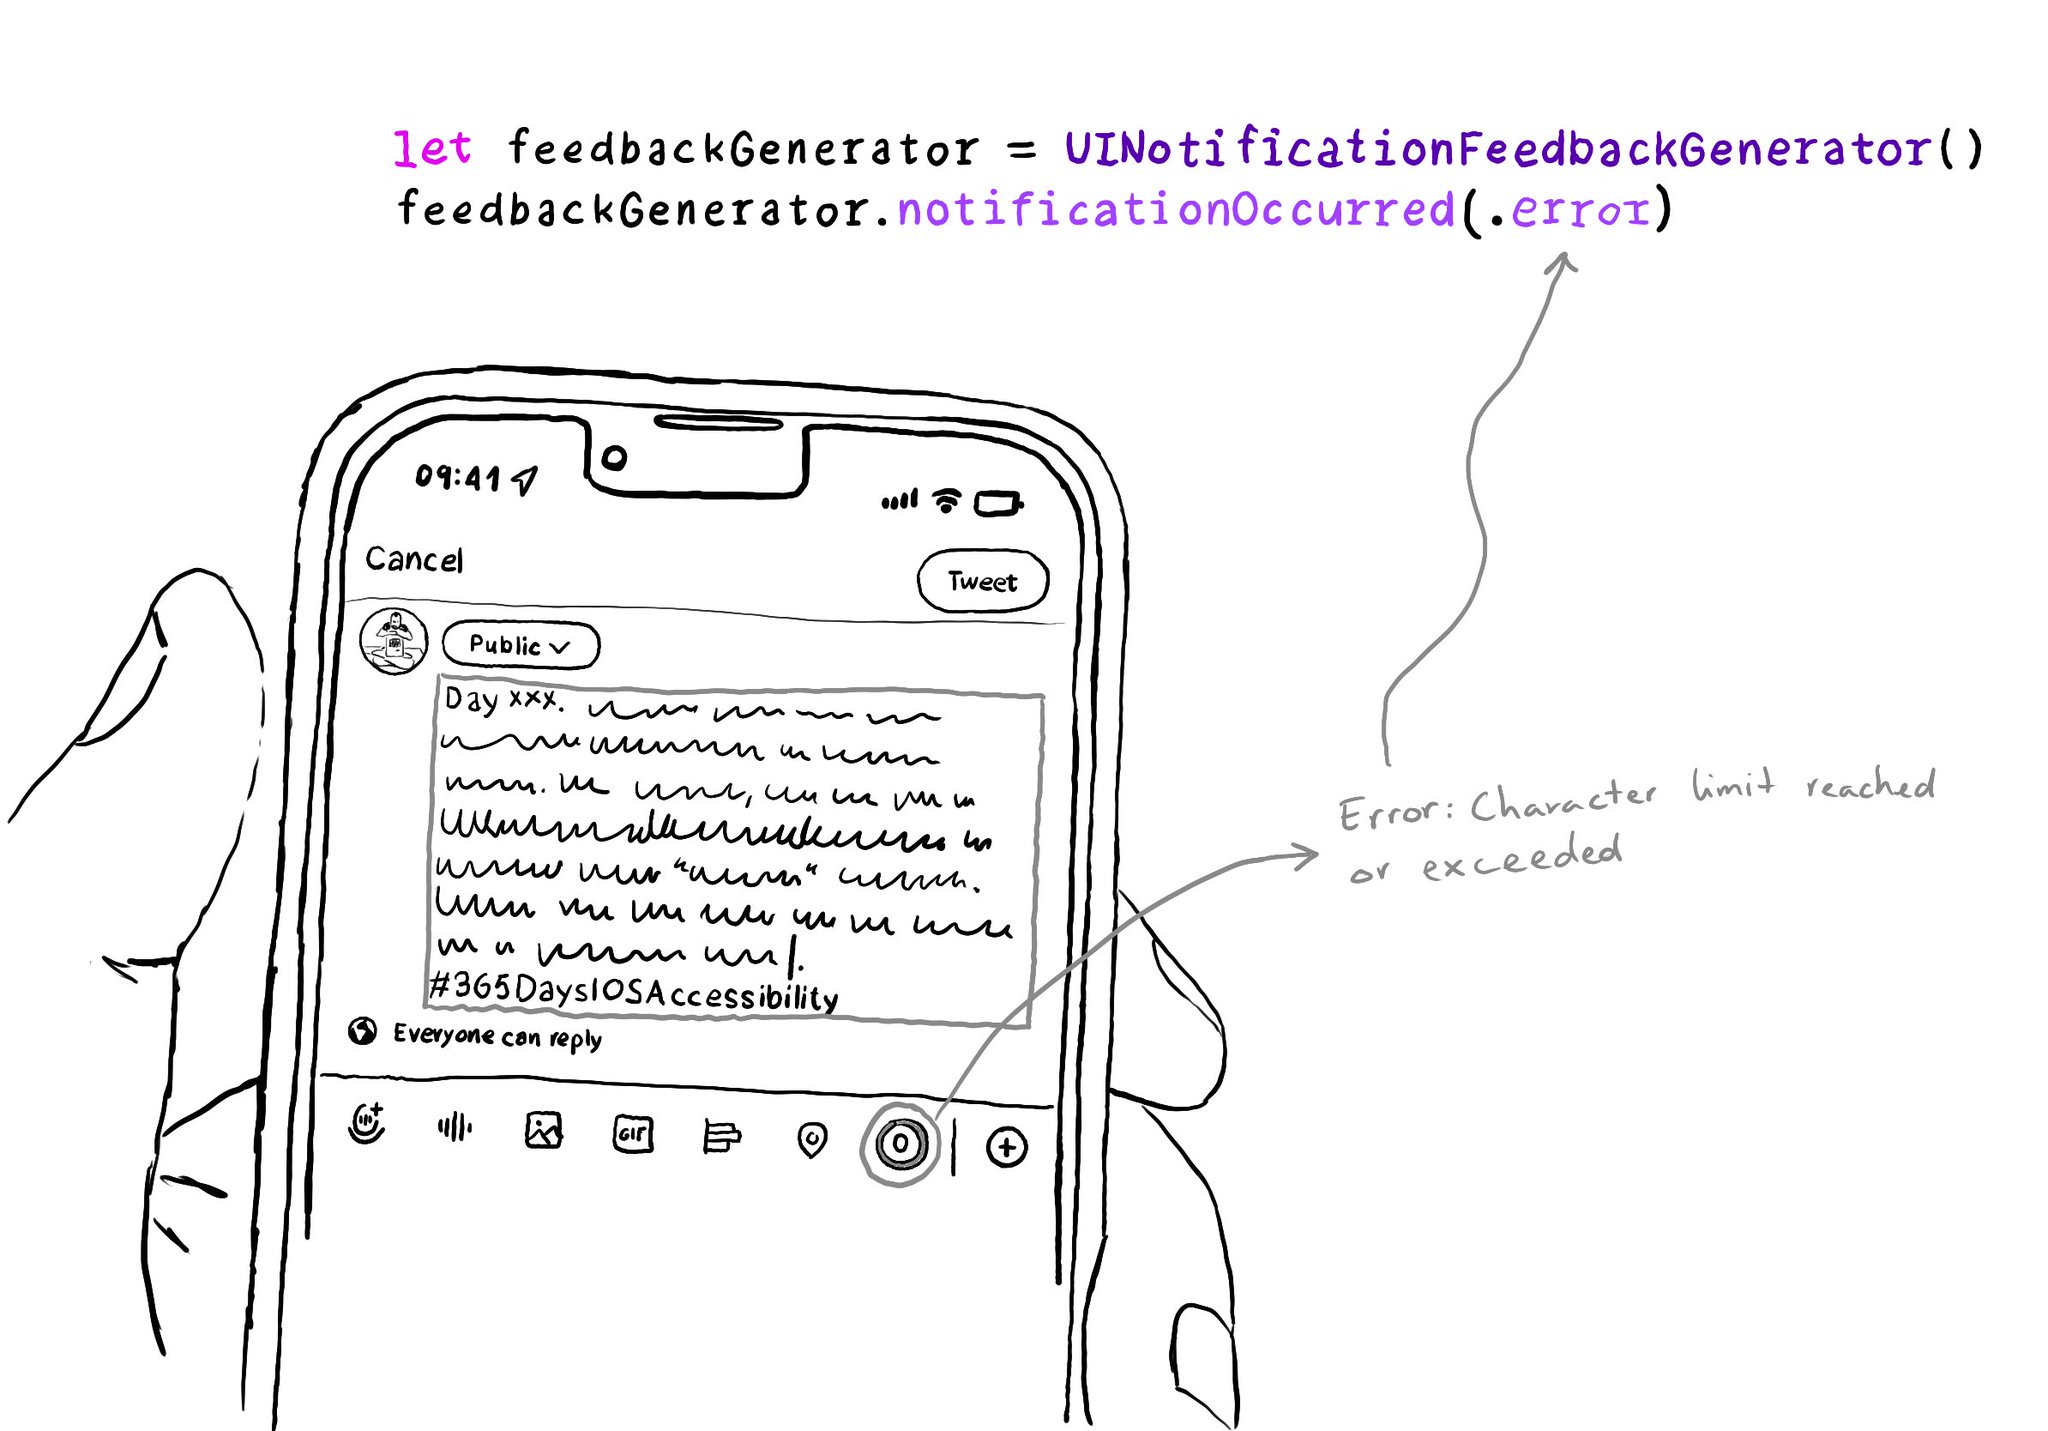 let feedbackGenerator = UINotificationFeedbackGenerator()
feedbackGenerator.notificationOccurred(.error)
09:41
Cancel
Tweet
Public
Day xxx.
#365DaysIOSAccessibility
Everyone can reply
GIF
0
Error: Character limit reached
or exceeded